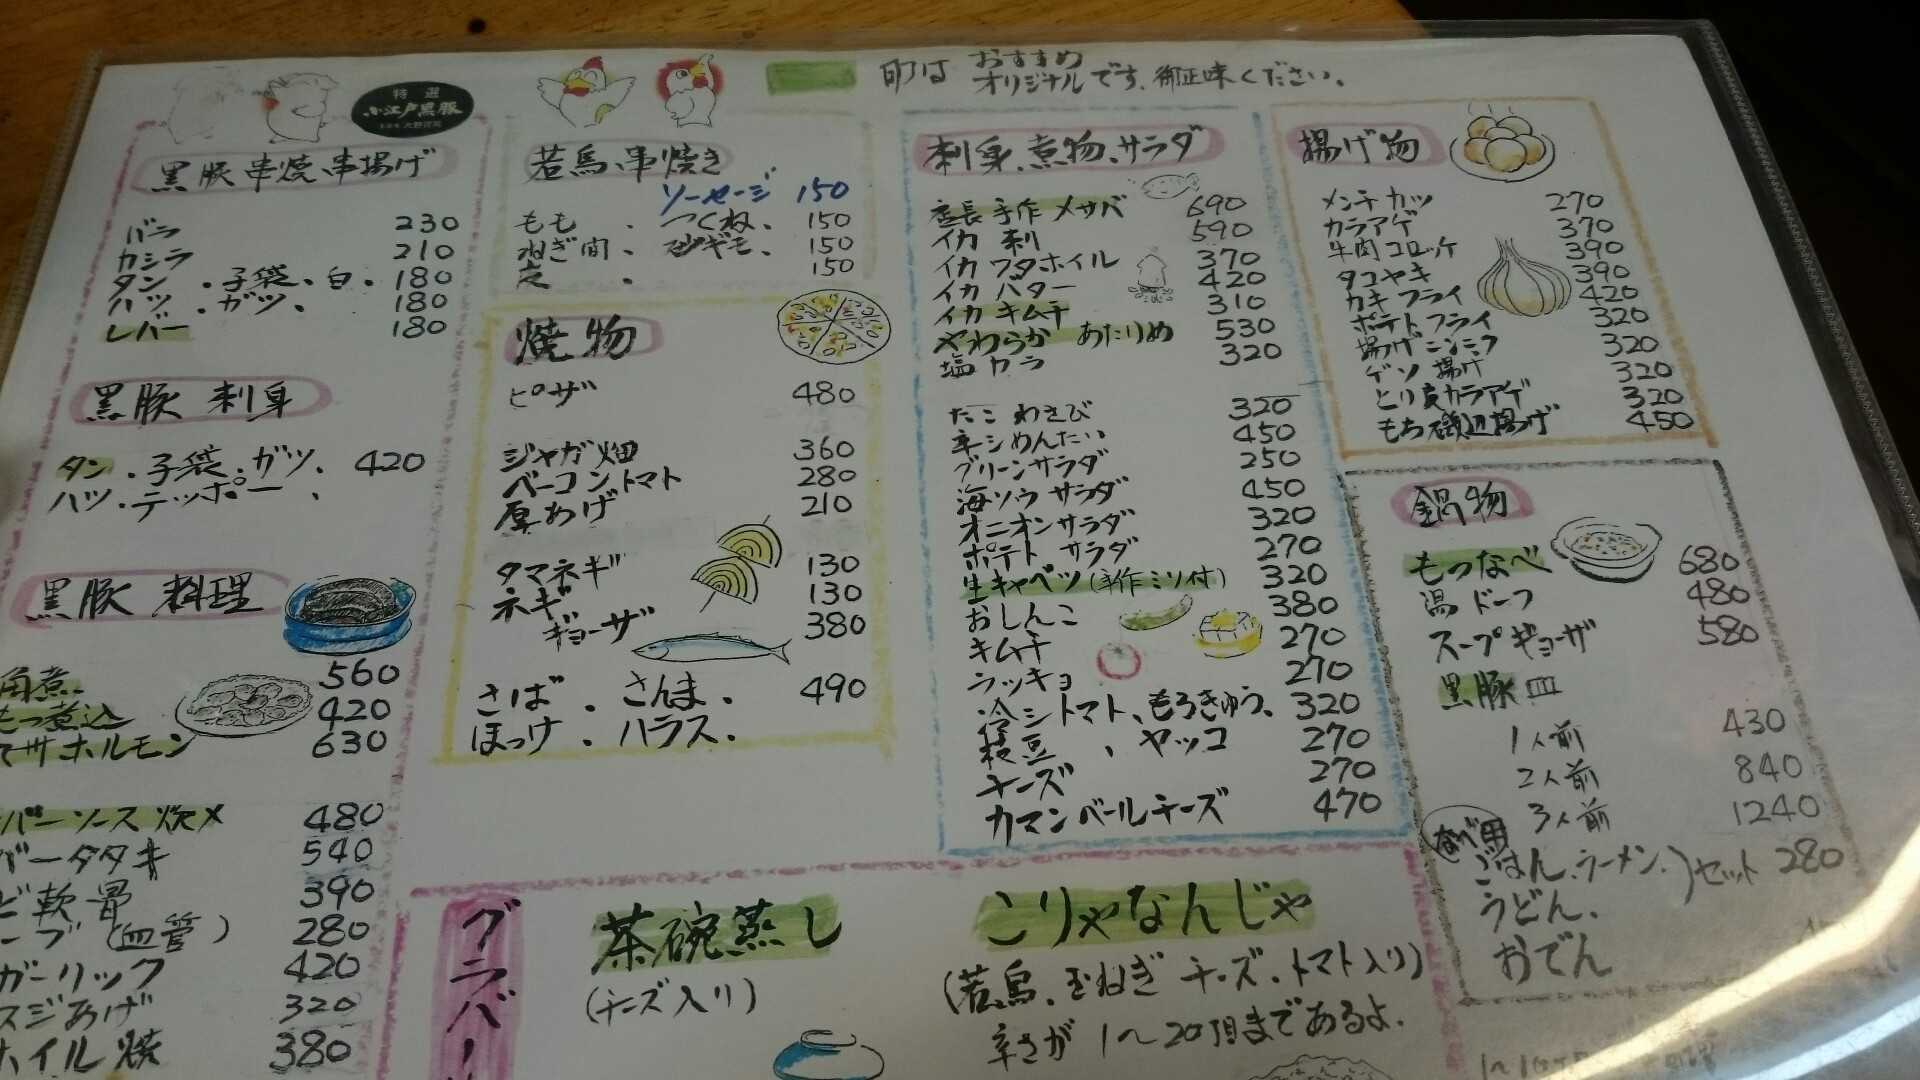 印は おすすめ
オリジナルです、御正味ください。
特選
小江戸黒豚
黒豚串焼串揚げ
バラ 230
カシラ 210
タン、子袋、白、 180
ハツ、ガツ、 180
レバー 180
黒豚 刺身
タン、子袋、ガツ、 420
ハツ、テッポー、
黒豚 料理
角煮 560
もつ煮込 420
ホルモン 630
バーソース炊メ 480
バータタキ 540
軟骨 390
ーブ(血管) 280
ガーリック 420
スジあげ 320
ホイル焼 380
若鳥、串焼き
ソーセージ 150
もも、つくね、 150
ねぎ間、砂ギモ、 150
皮、 150
焼物
ピザ 480
ジャガ畑 360
ベーコントマト 280
厚あげ 210
タマネギ 130
ネギ 130
ギョーザ 380
さば、さんま、 490
ほっけ、ハラス、
刺身、煮物、サラダ
店長手作メサバ 690
イカ刺 590
イカワタホイル 370
イカバター 420
イカキムチ 310
やわらかあたりめ 530
塩カラ 320
たこわさび 320
辛シめんたい 450
グリーンサラダ 250
海ソウサラダ 450
オニオンサラダ 320
ポテトサラダ 270
生キャベツ(手作ミソ付) 320
おしんこ 380
キムチ 270
ラッキョ 270
冷シトマト、もろきゅう、 320
枝豆、ヤッコ 270
チーズ 270
カマンベールチーズ 470
揚げ物
メンチカツ 270
カラアゲ 370
牛肉コロッケ 390
タコヤキ 390
カキフライ 420
ポテトフライ 320
揚げニンニク 320
ゲソ揚げ 320
とり皮カラアゲ 320
もち磯辺揚げ 450
鍋物
もつなべ 680
湯ドーフ 480
スープギョーザ 580
黒豚皿
1人前 430
2人前 840
3人前 1240
なべ用
ごはん、ラーメン、)セット 280
うどん、
おでん
茶碗蒸し
(チーズ入り)
こりゃなんじゃ
(若鳥、玉ねぎ チーズ、トマト入り)
辛さが1〜20倍まであるよ.